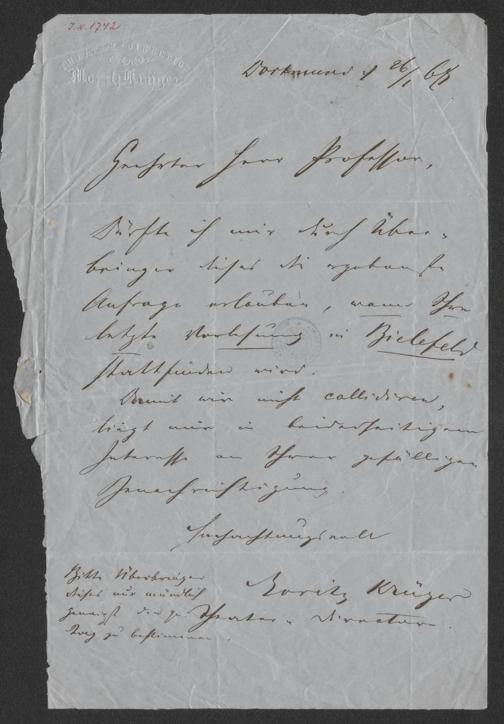 I.N. 1742
Moritz Krüger
Dortmund d 26/1 68
Geehrter Herr Professor,
Dürfte ich mir durch Über-
bringer dieses die ergebenste
Anfrage erlauben, wann Ihre
letzte Vorlesung in Bielefeld
stattfinden wird.
Damit wir nicht collidiren,
liegt mir in beiderseitigem
Interesse an Ihrer gefälligen
Benachrichtigung.
Hochachtungsvoll
Moritz Krüger
Theater-Director.
Bitte Überbringer
dieses nur mündlich
geneigst den
Tag zu bestimmen.